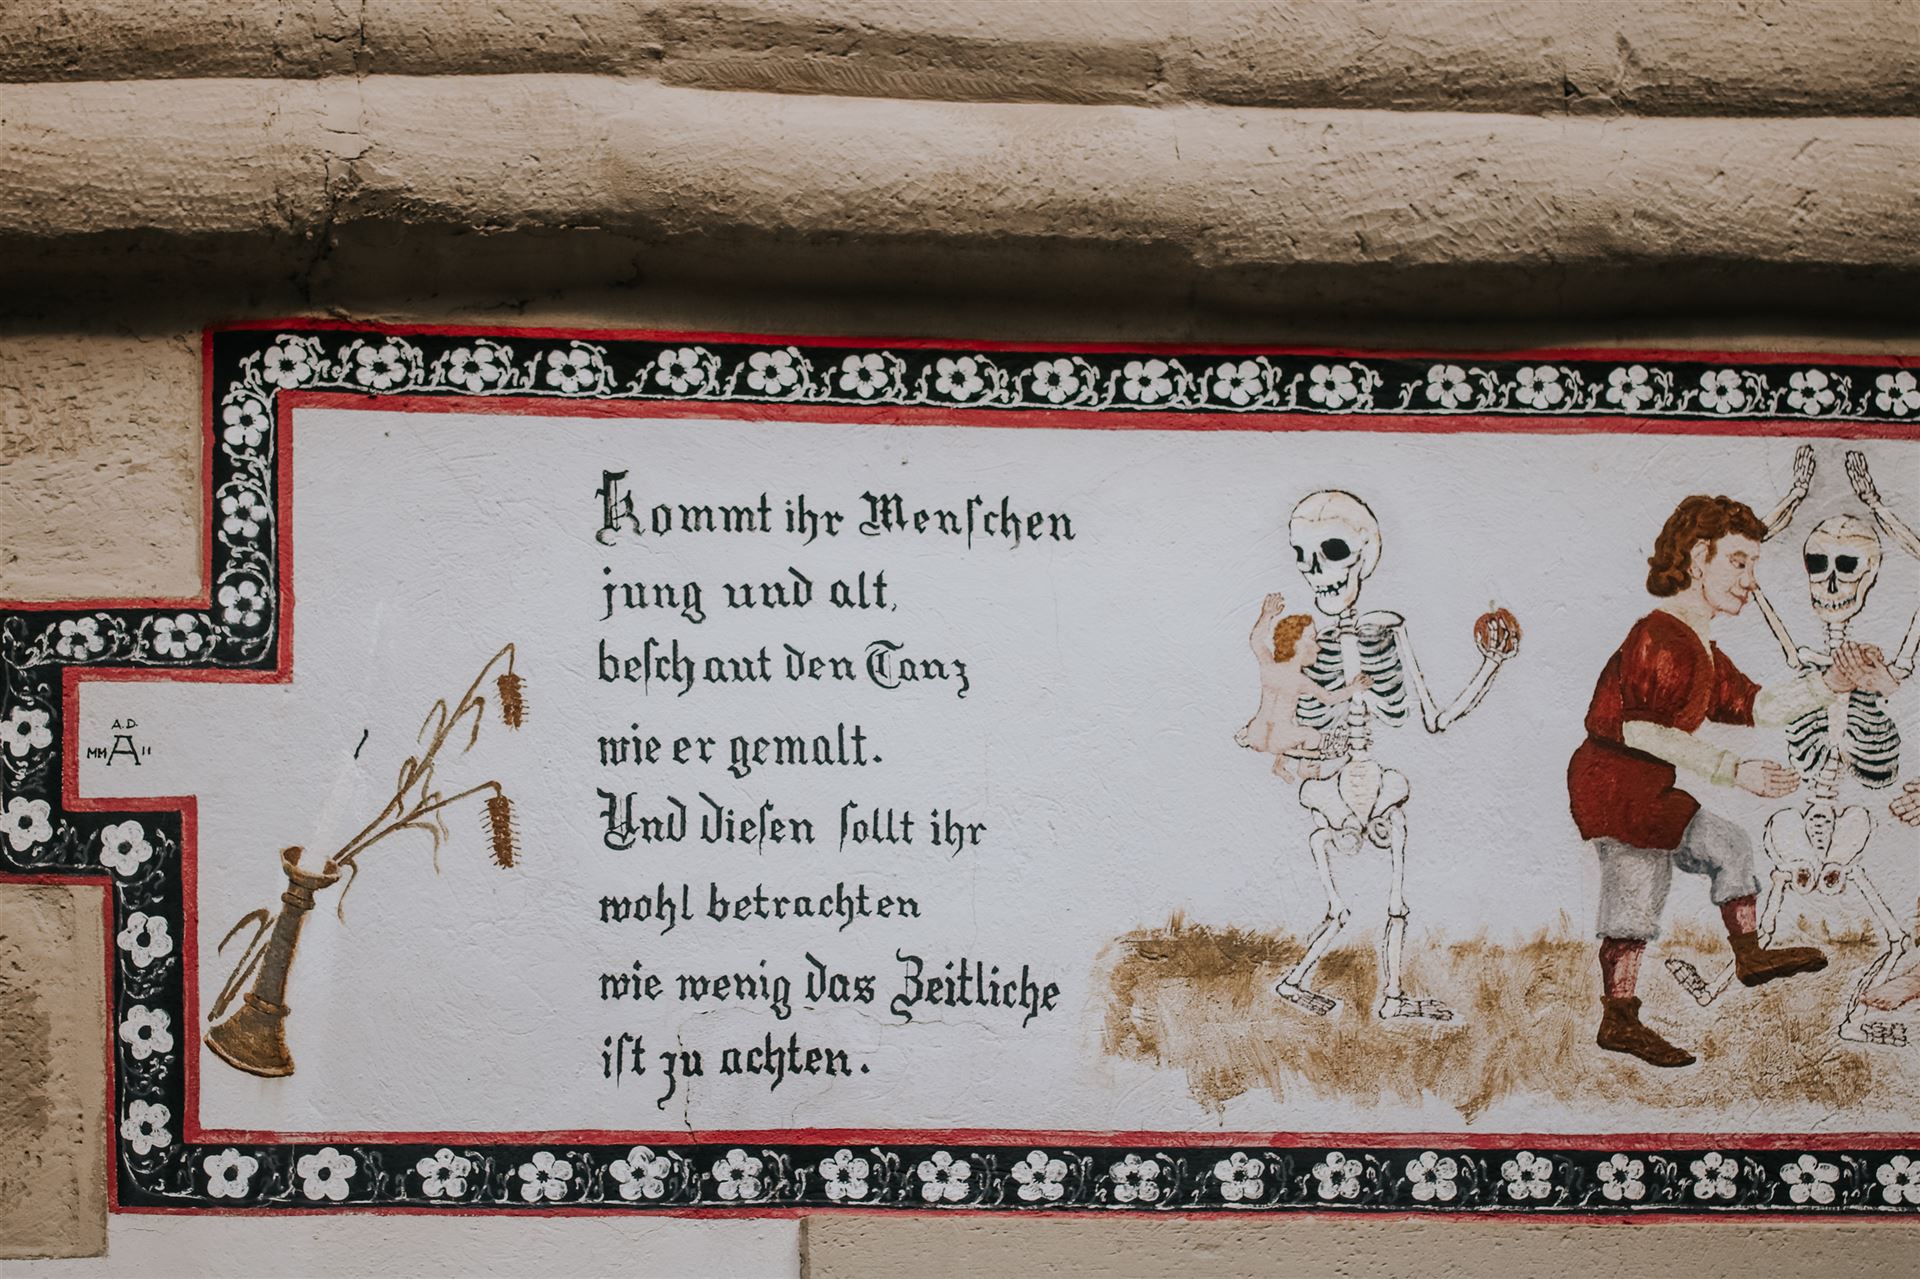 A.D.
MM A II
Kommt ihr Menſchen
jung und alt,
beſchaut den Tanz
wie er gemalt.
Und dieſen ſollt ihr
wohl betrachten
wie wenig das Zeitliche
iſt zu achten.